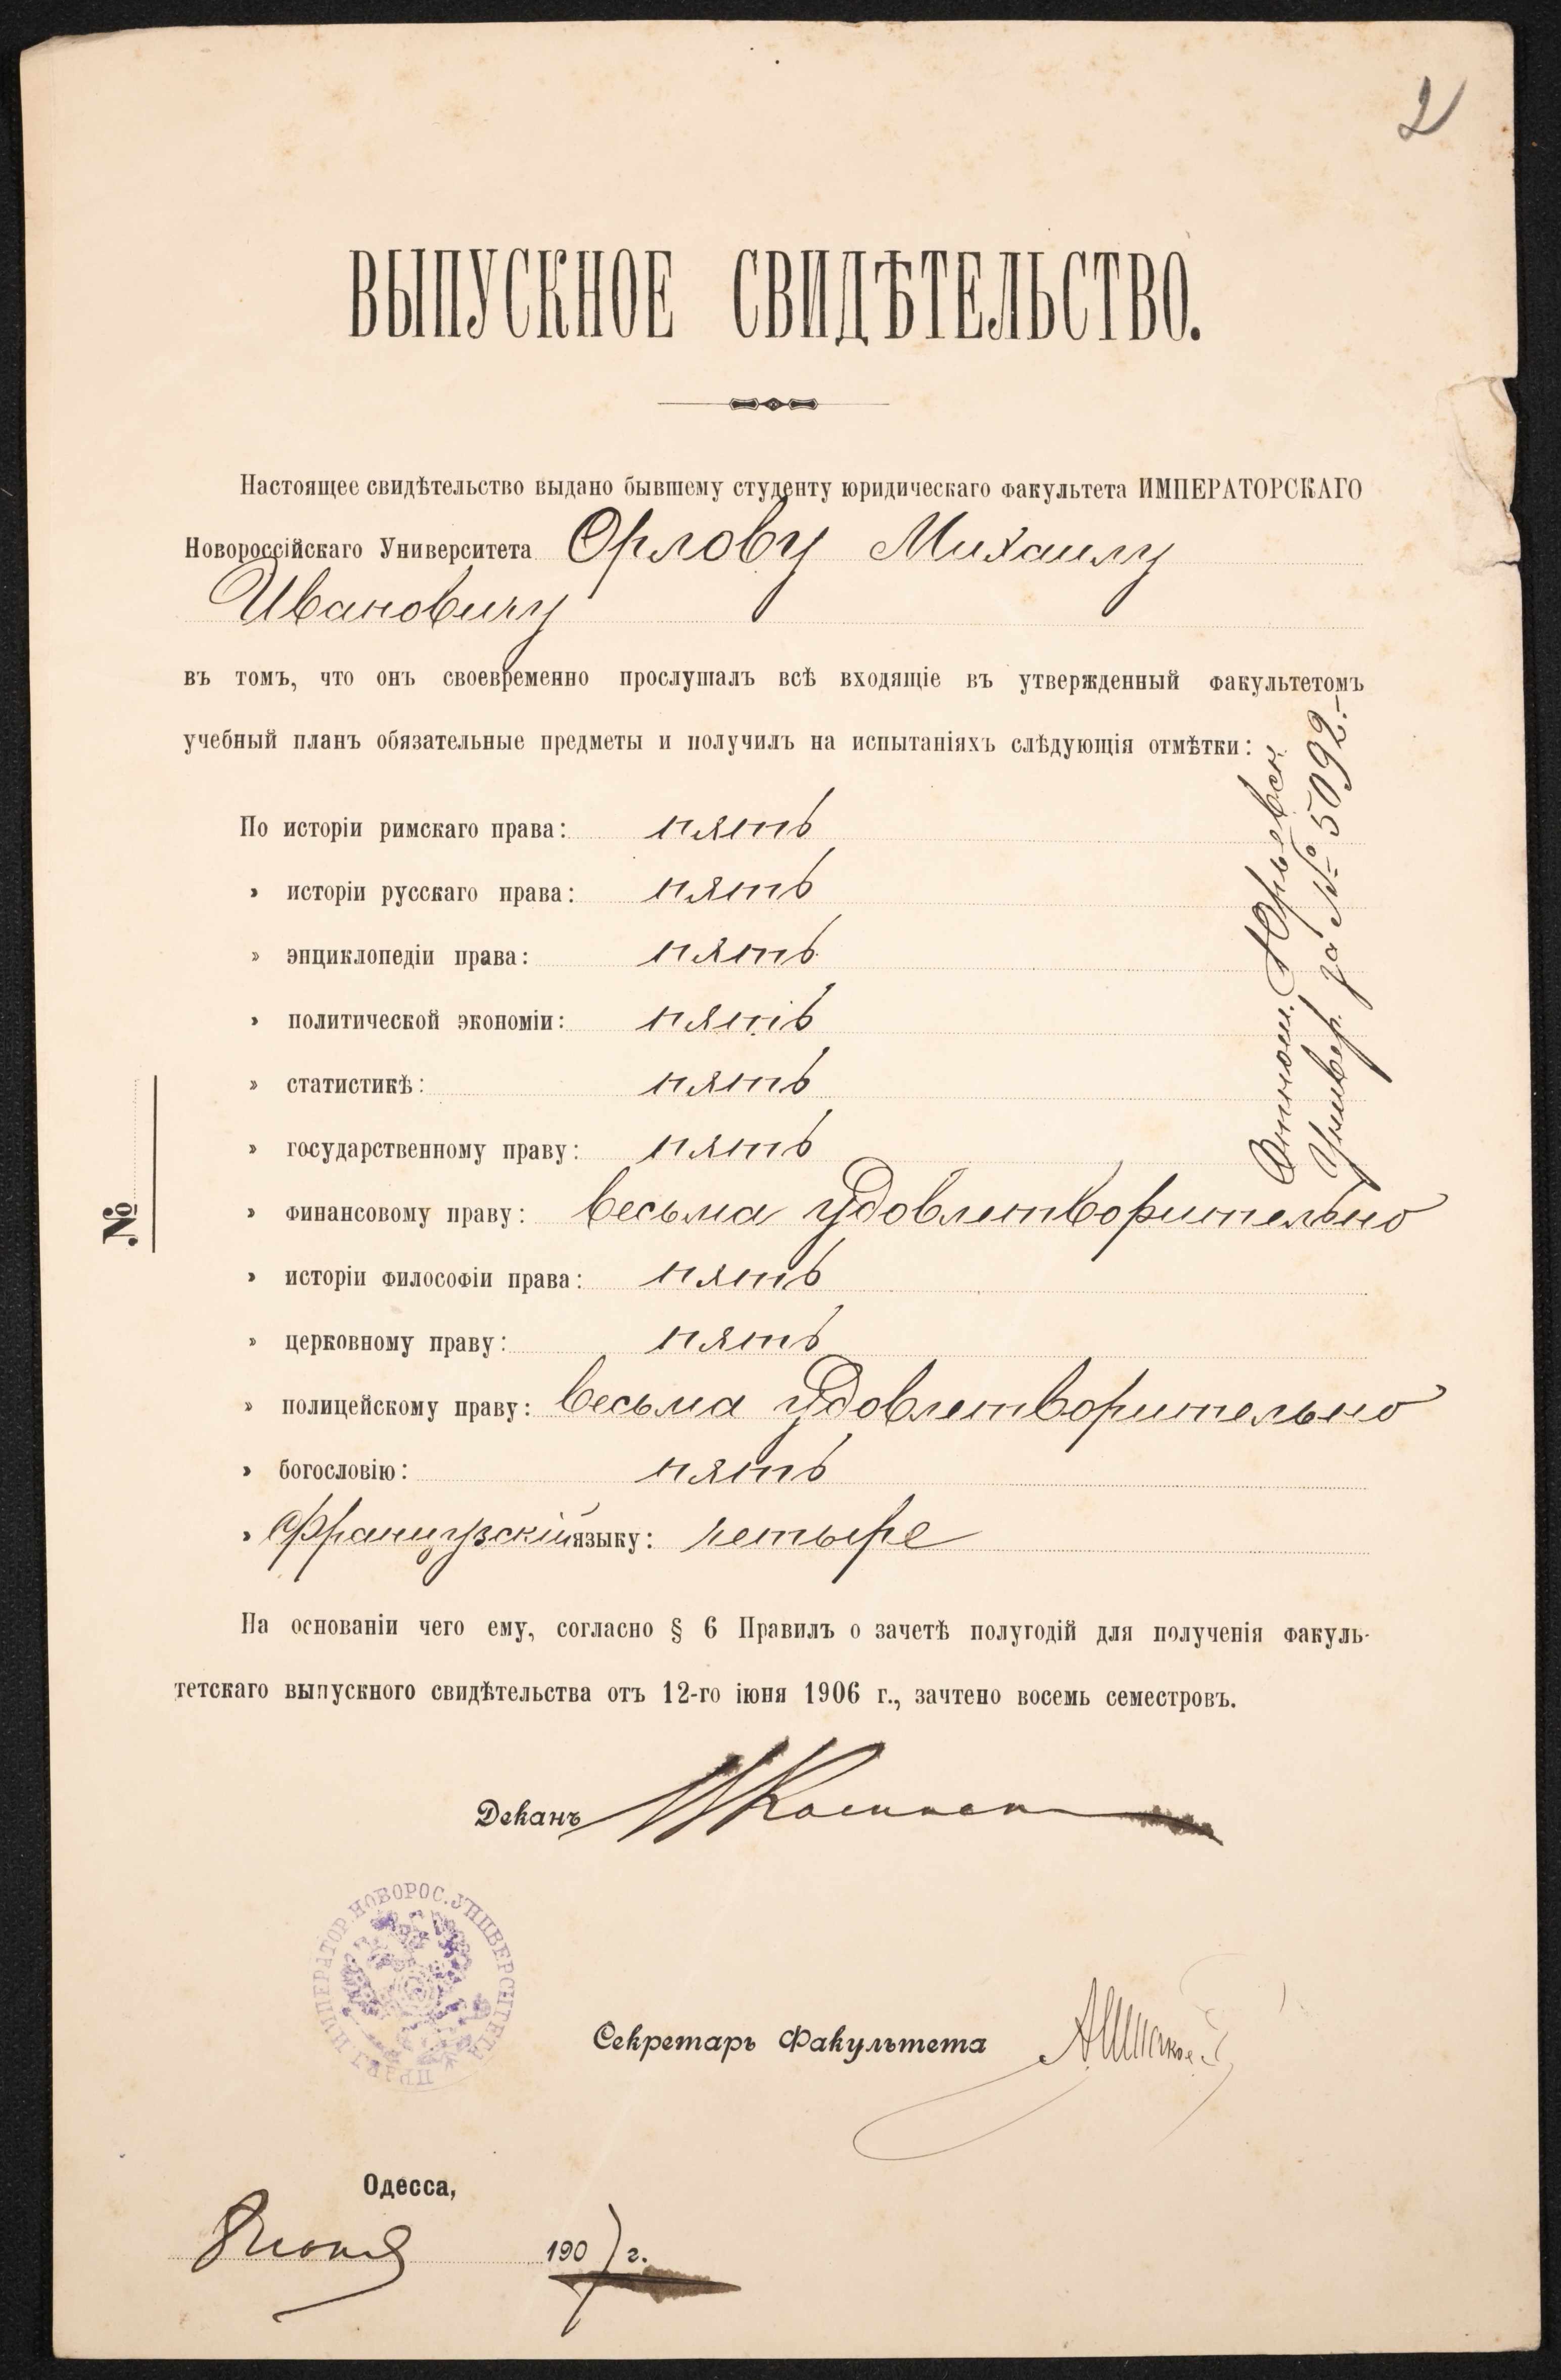 2
ВЫПУСКНОЕ СВИДѢТЕЛЬСТВО.
Настоящее свидѣтельство выдано бывшему студенту юридическаго факультета ИМПЕРАТОРСКАГО
Новороссійскаго Университета Орлову Михаилу
Ивановичу
въ томъ, что онъ своевременно прослушалъ всѣ входящіе въ утвержденный факультетомъ
учебный планъ обязательные предметы и получилъ на испытаніяхъ слѣдующія отмѣтки:
По исторіи римскаго права: пять
» исторіи русскаго права: пять
» энциклопедіи права: пять
» политической экономіи: пять
» статистикѣ: пять
» государственному праву: пять
» финансовому праву: весьма удовлетворительно
» исторіи философіи права: пять
» церковному праву: пять
» полицейскому праву: весьма удовлетворительно
» богословію: пять
» Французскій языку: четыре
На основаніи чего ему, согласно § 6 Правилъ о зачетѣ полугодій для полученія факуль-
тетскаго выпускного свидѣтельства отъ 12-го іюня 1906 г., зачтено восемь семестровъ.
Деканъ
Секретарь Факультета
ИМПЕРАТОР. НОВОРОС. УНИВЕРСИТЕТА
Одесса,
8 июня 1907 г.
№
Отнош. Юрьевск.
Универ. за № 5092.-